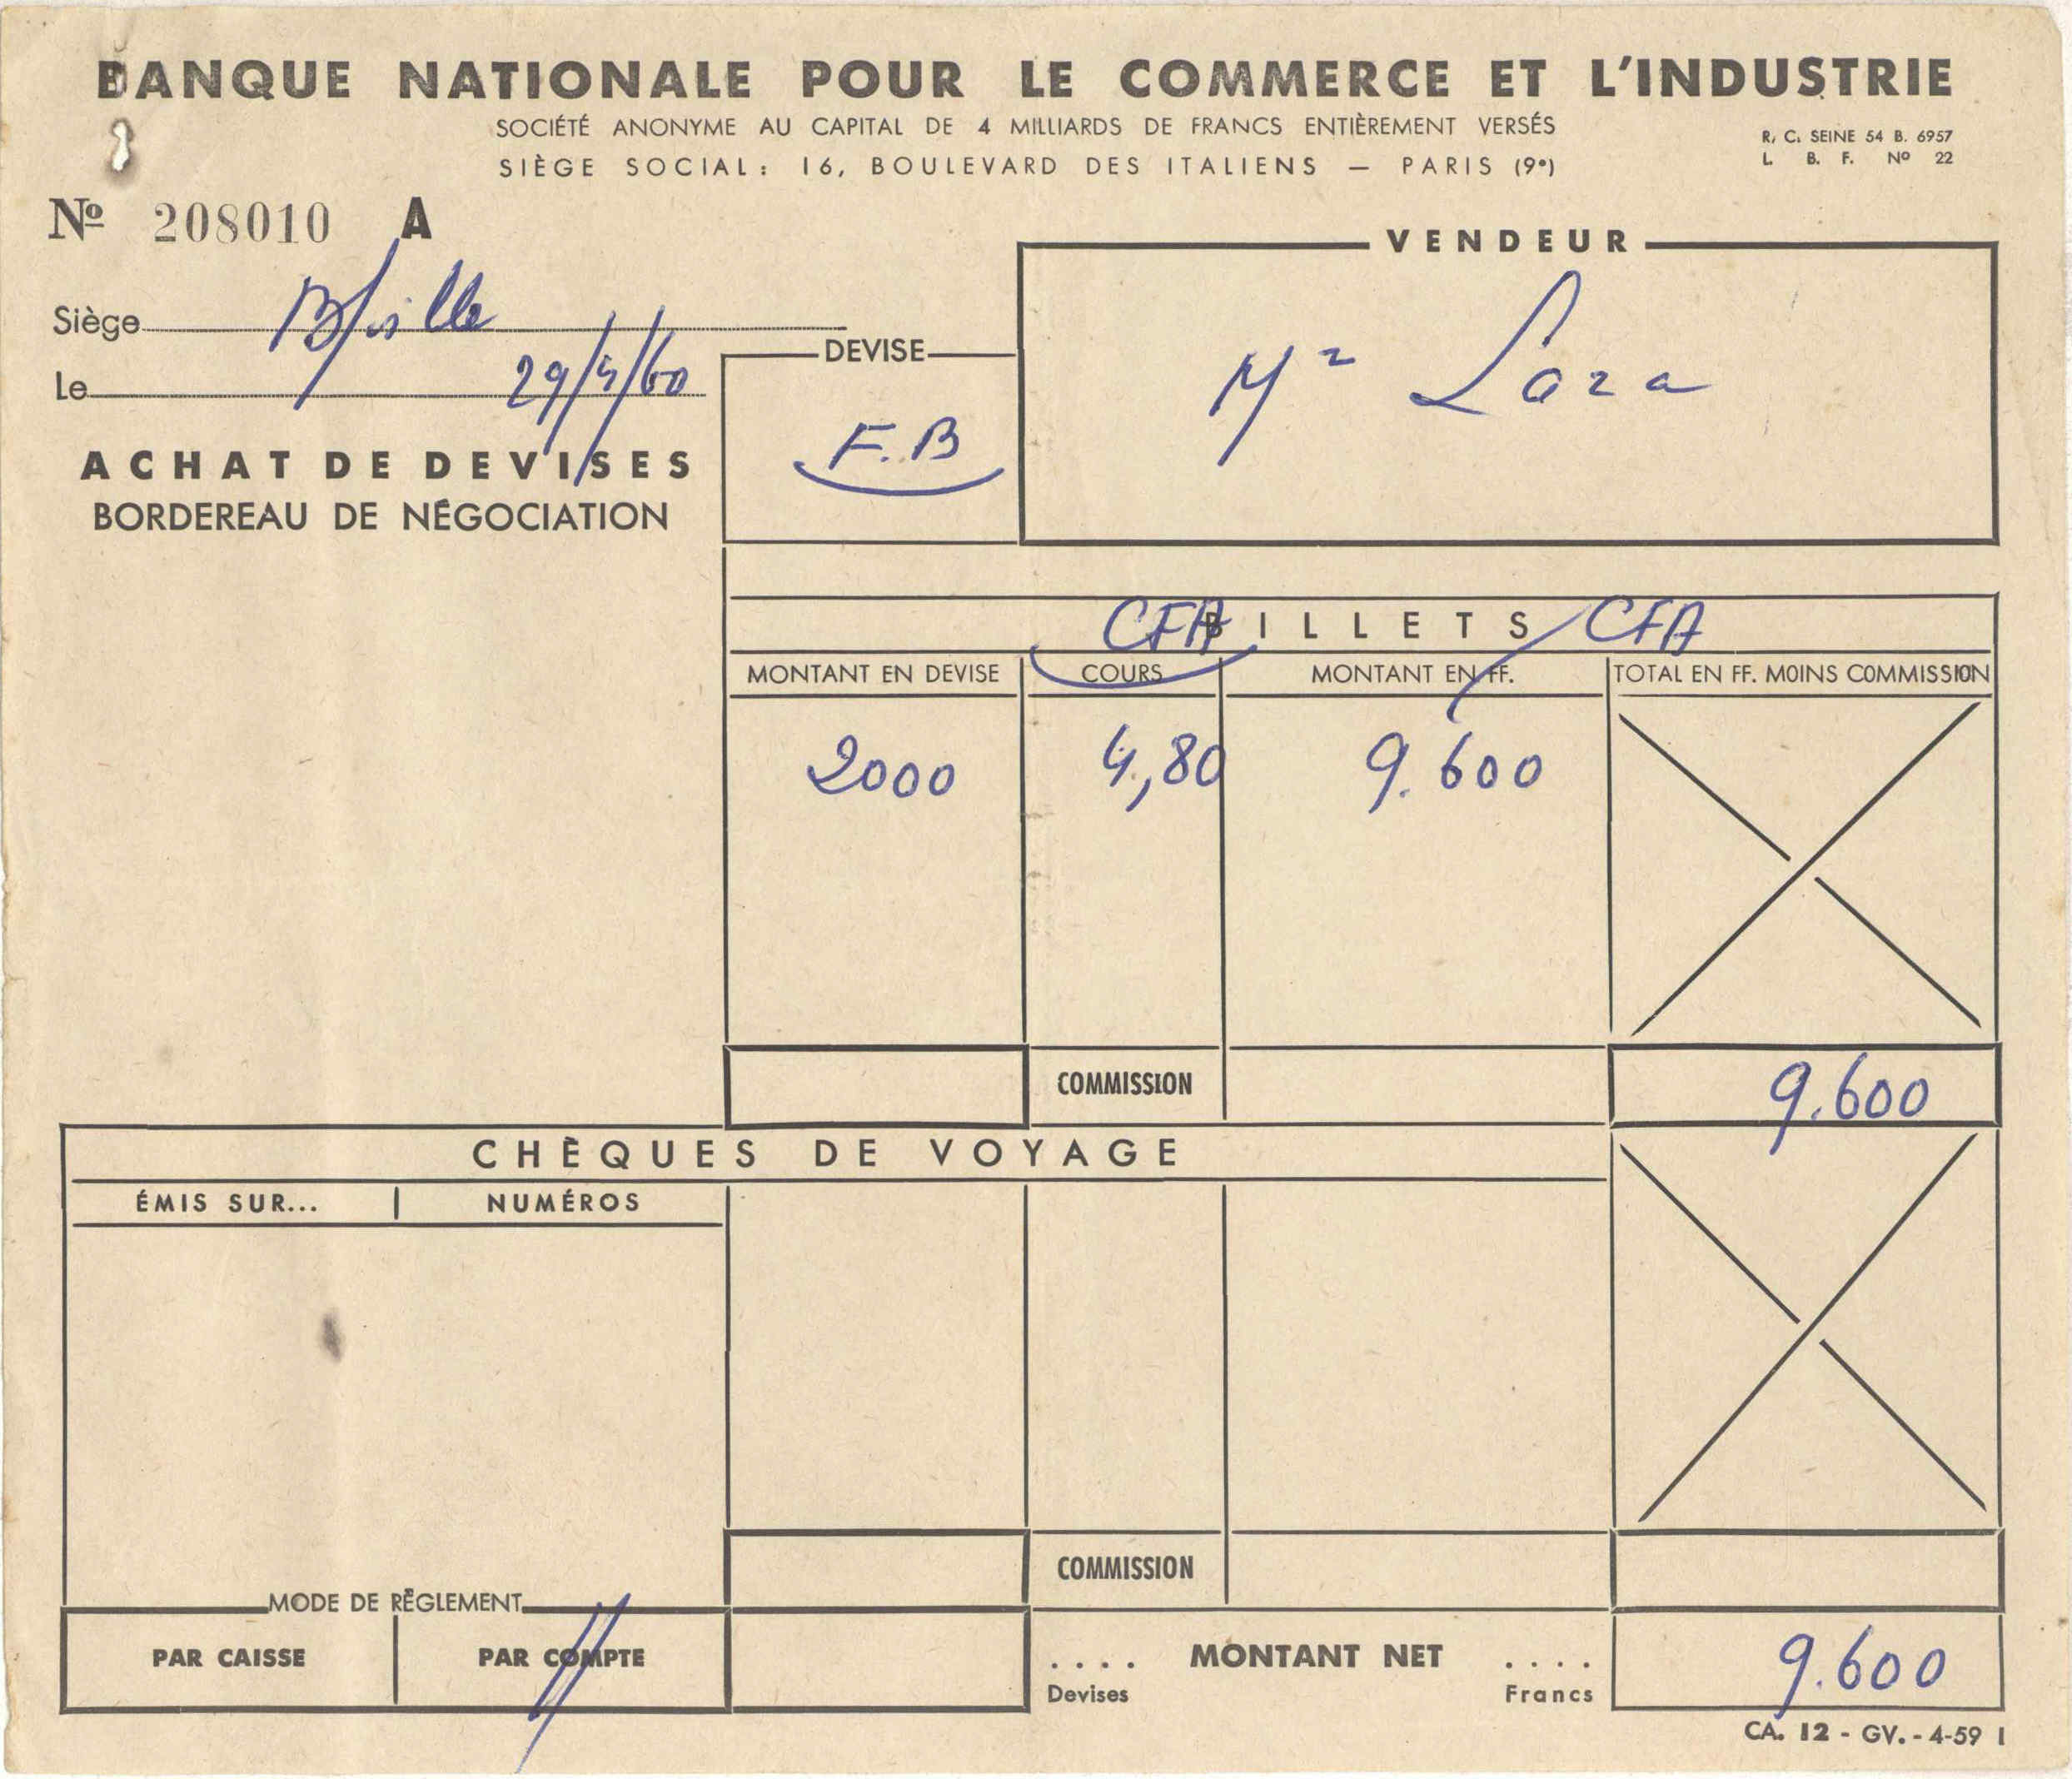 BANQUE NATIONALE POUR LE COMMERCE ET L'INDUSTRIE
SOCIÉTÉ ANONYME AU CAPITAL DE 4 MILLIARDS DE FRANCS ENTIÈREMENT VERSÉS
SIÈGE SOCIAL : 16, BOULEVARD DES ITALIENS — PARIS (9e)
R. C. SEINE 54 B. 6957
L. B. F. Nº 22
Nº 208010 A
Siège B/ville
Le 29/4/60
ACHAT DE DEVISES
BORDEREAU DE NÉGOCIATION
DEVISE
F.B
VENDEUR
Mr Laza
CFA BILLETS CFA
MONTANT EN DEVISE COURS MONTANT EN FF. TOTAL EN FF. MOINS COMMISSION
2000 4,80 9.600
COMMISSION 9.600
CHÈQUES DE VOYAGE
ÉMIS SUR... NUMÉROS
COMMISSION
MODE DE RÈGLEMENT
PAR CAISSE PAR COMPTE
.... MONTANT NET .... 9.600
Devises Francs
CA. 12 - GV. - 4-59 I